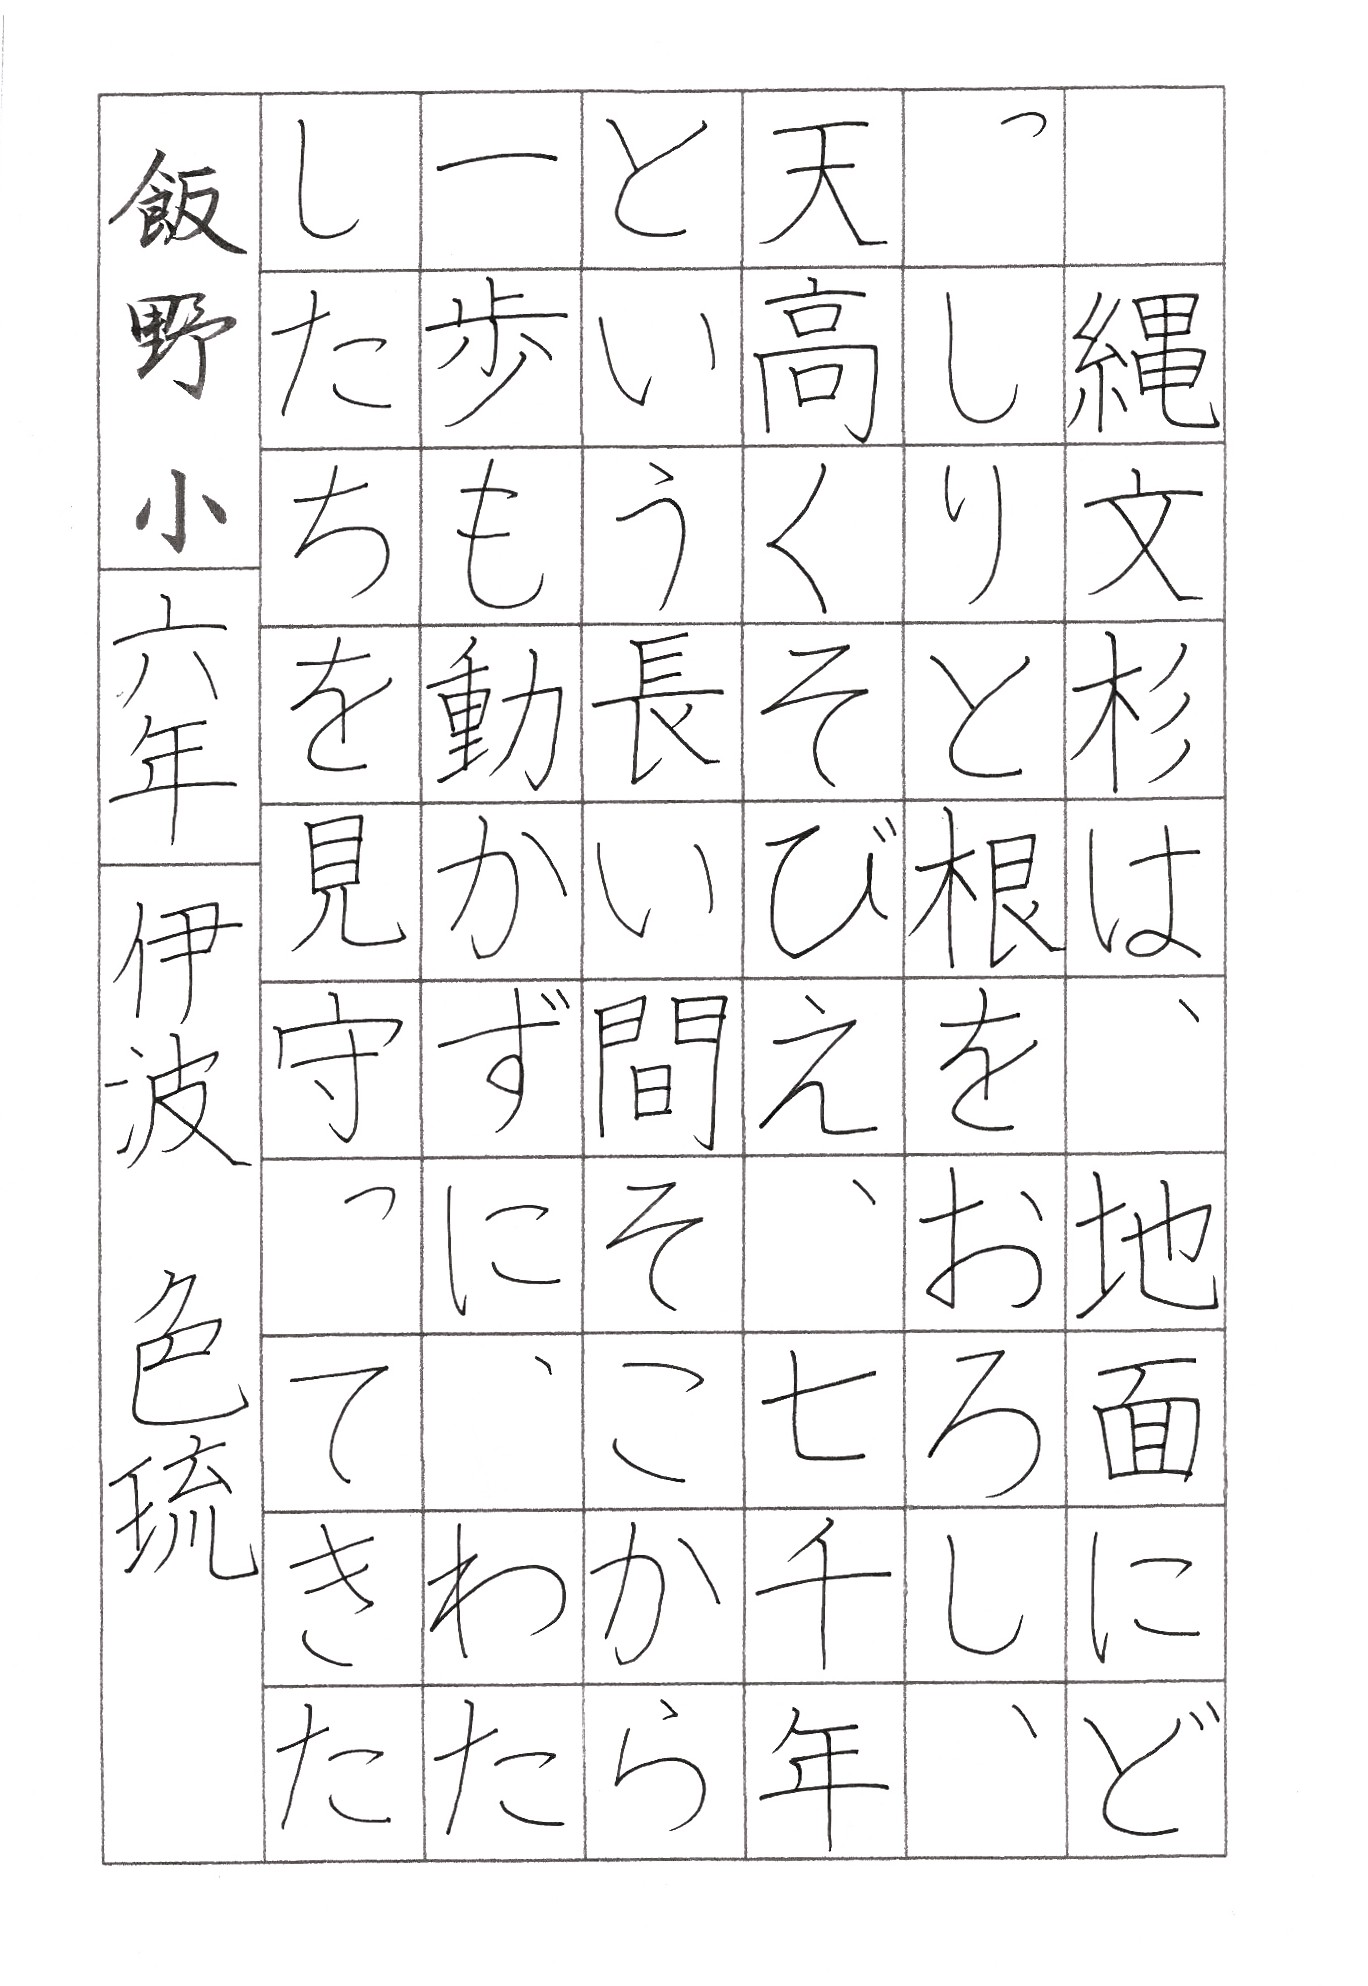 縄文杉は、地面にど
っしりと根をおろし、
天高くそびえ、七千年
という長い間そこから
一歩も動かずに、わた
したちを見守ってきた
飯野小 六年 伊波 色琉